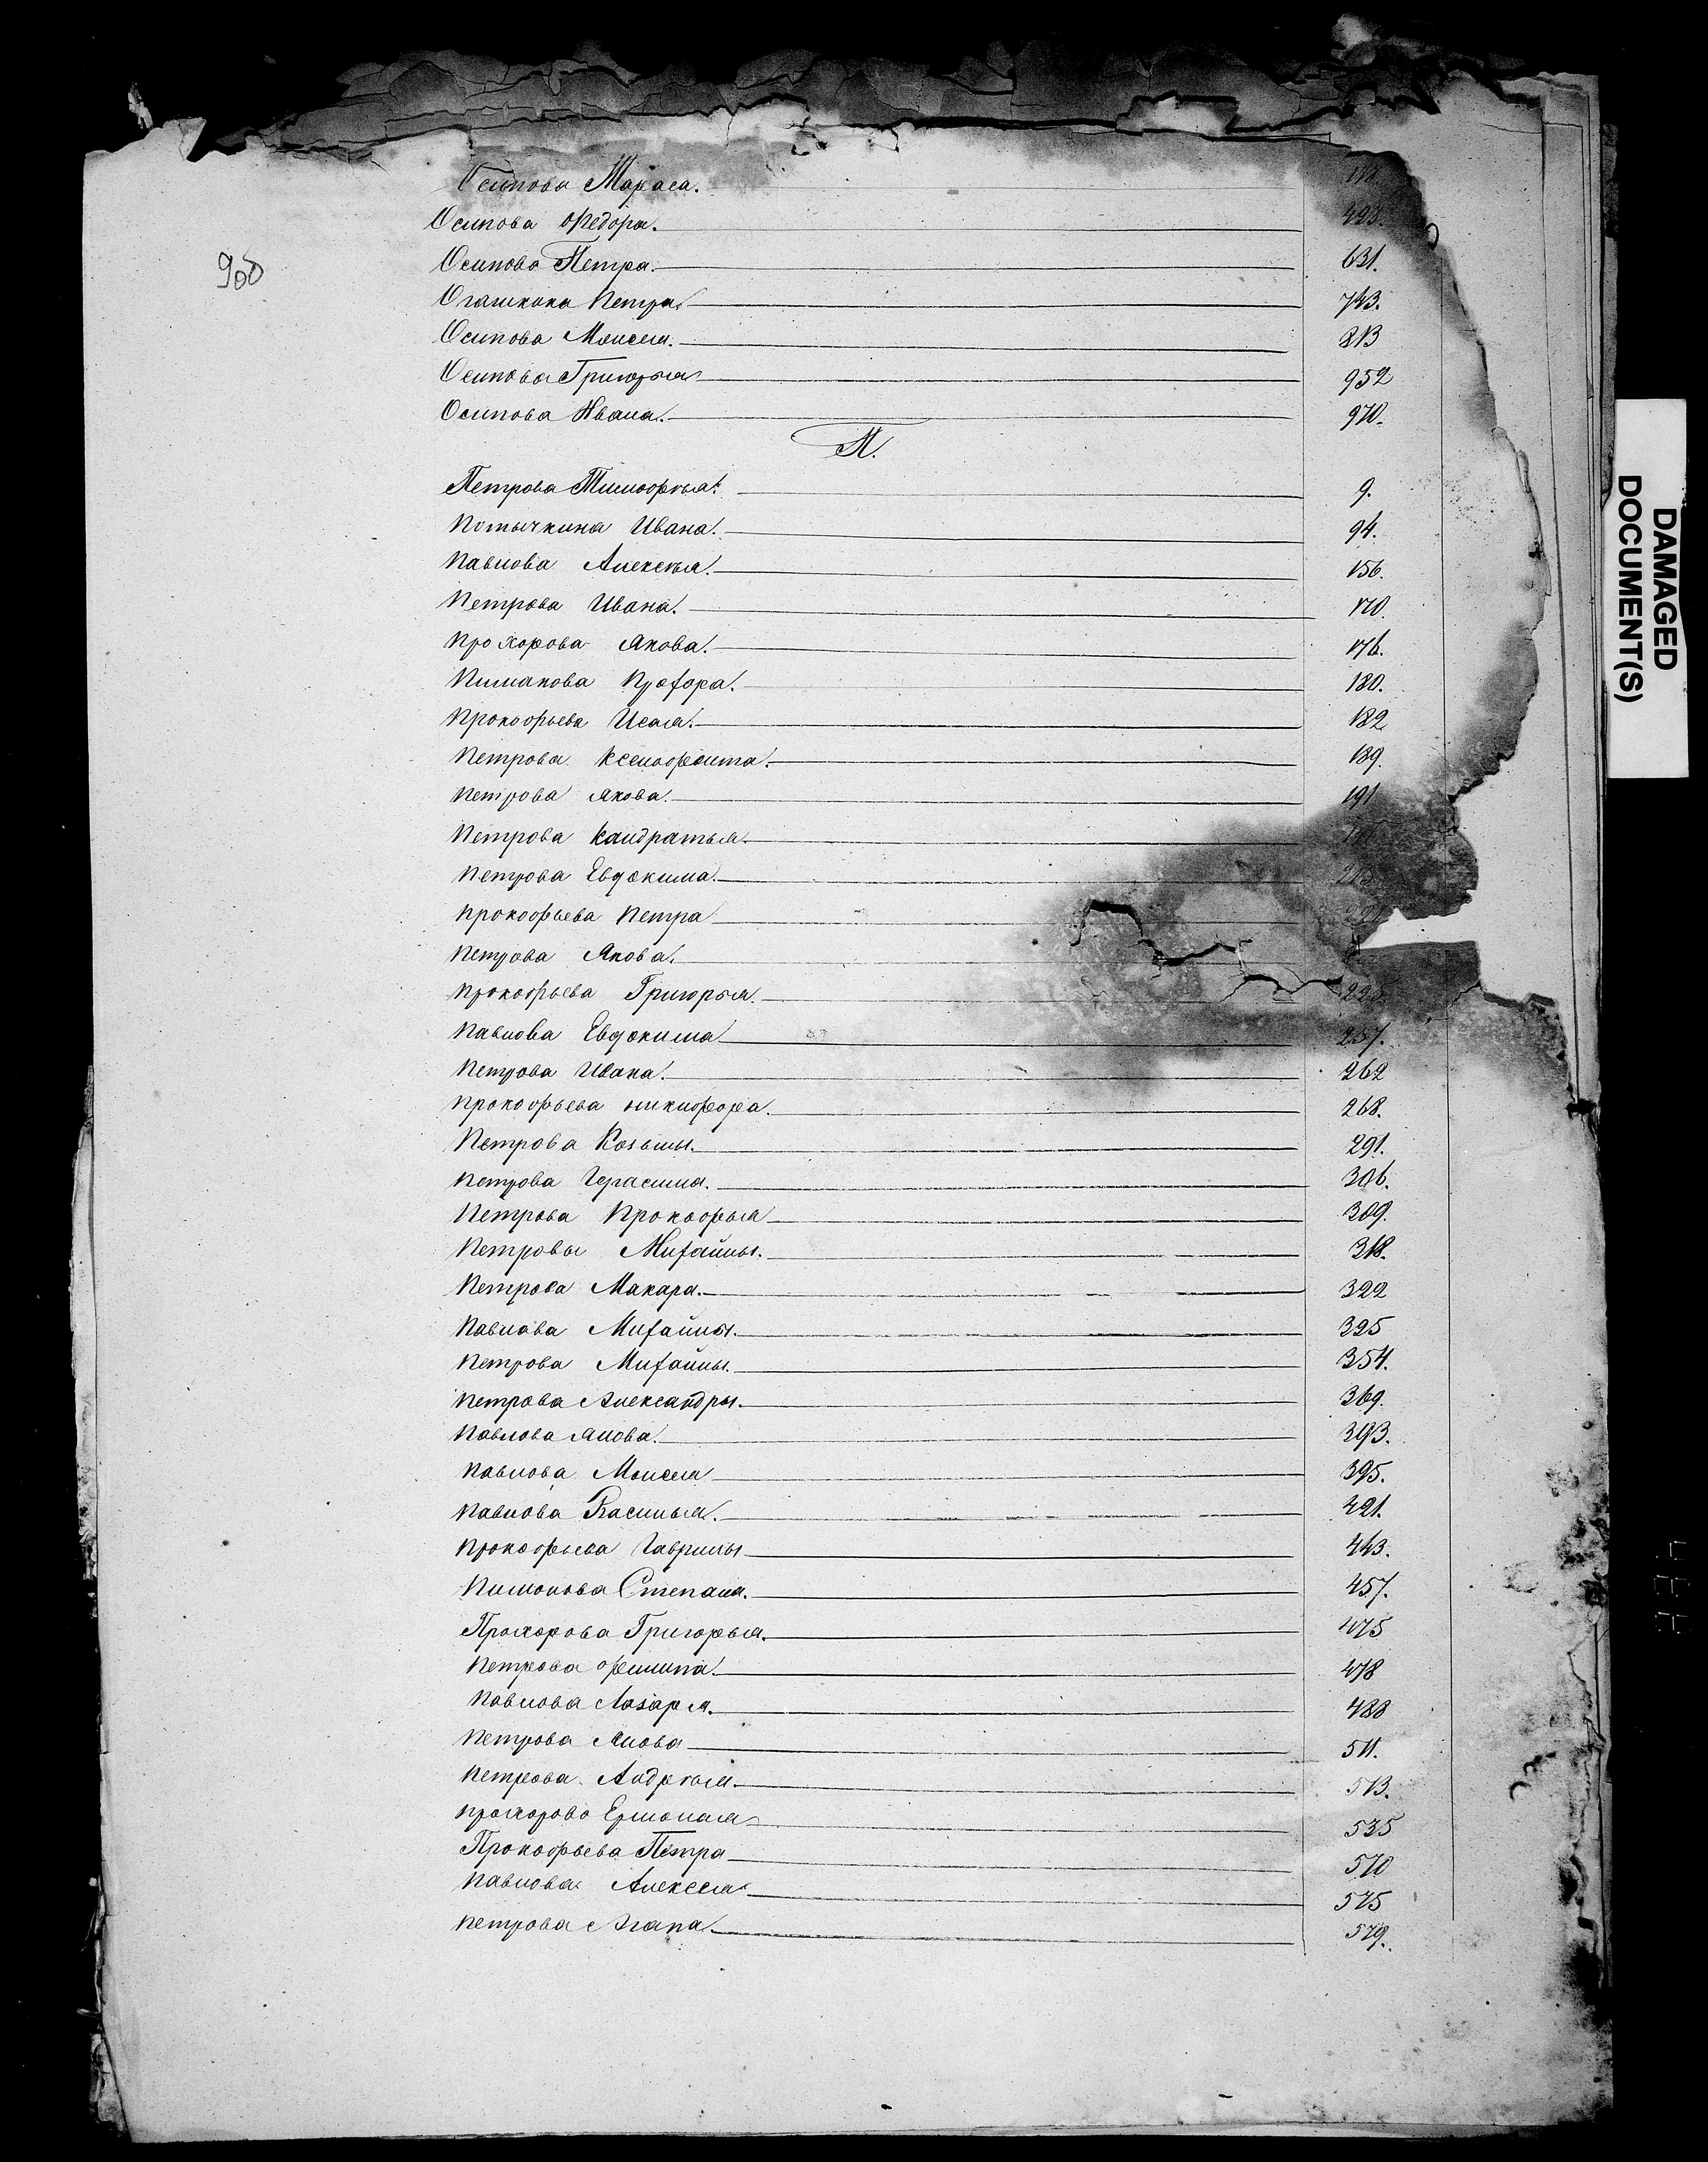 Осипова Тараса.
Осипова Федора. 423.
900
Осипова Петра. 631.
Осташкина Петра. 743.
Осипова Моисея. 813
Осипова Григорья 952
Осипова Ивана. 970.
П.
Петрова Тимофея. 9.
Потычкина Ивана. 94.
Павлова Алексея. 156.
Петрова Ивана. 170.
Прохорова Якова. 176.
Пиманова Прохора. 180.
Прокофьева Исая. 182
Петрова Ксенофонта. 189.
Петрова Якова. 191
Петрова Кандратья.
Петрова Евдокима.
Прокофьева Петра
Петрова Якова.
Прокофьева Григорья. 225
Павлова Евдокима 257.
Петрова Ивана. 262
Прокофьева Никифора. 268.
Петрова Козьмы. 291.
Петрова Герасима. 306.
Петрова Прокофья 309.
Петрова Михайлы. 318.
Петрова Макара. 322
Павлова Михайлы. 325
Петрова Михайлы. 354.
Петрова Александры. 369.
Павлова Якова. 393.
Павлова Моисея 395.
Павлова Василья. 421.
Прокофьева Гаврилы 443.
Пимонова Степана. 457.
Прохорова Григорья. 475
Петрова Филипа. 478
Павлова Лазаря. 488
Петрова Якова 511.
Петрова Андрея. 513.
Прохорово Ермолая 535
Прокофьева Петра 570
Павлова Алексея 575
Петрова Агапа. 579.
DAMAGED
DOCUMENT(S)